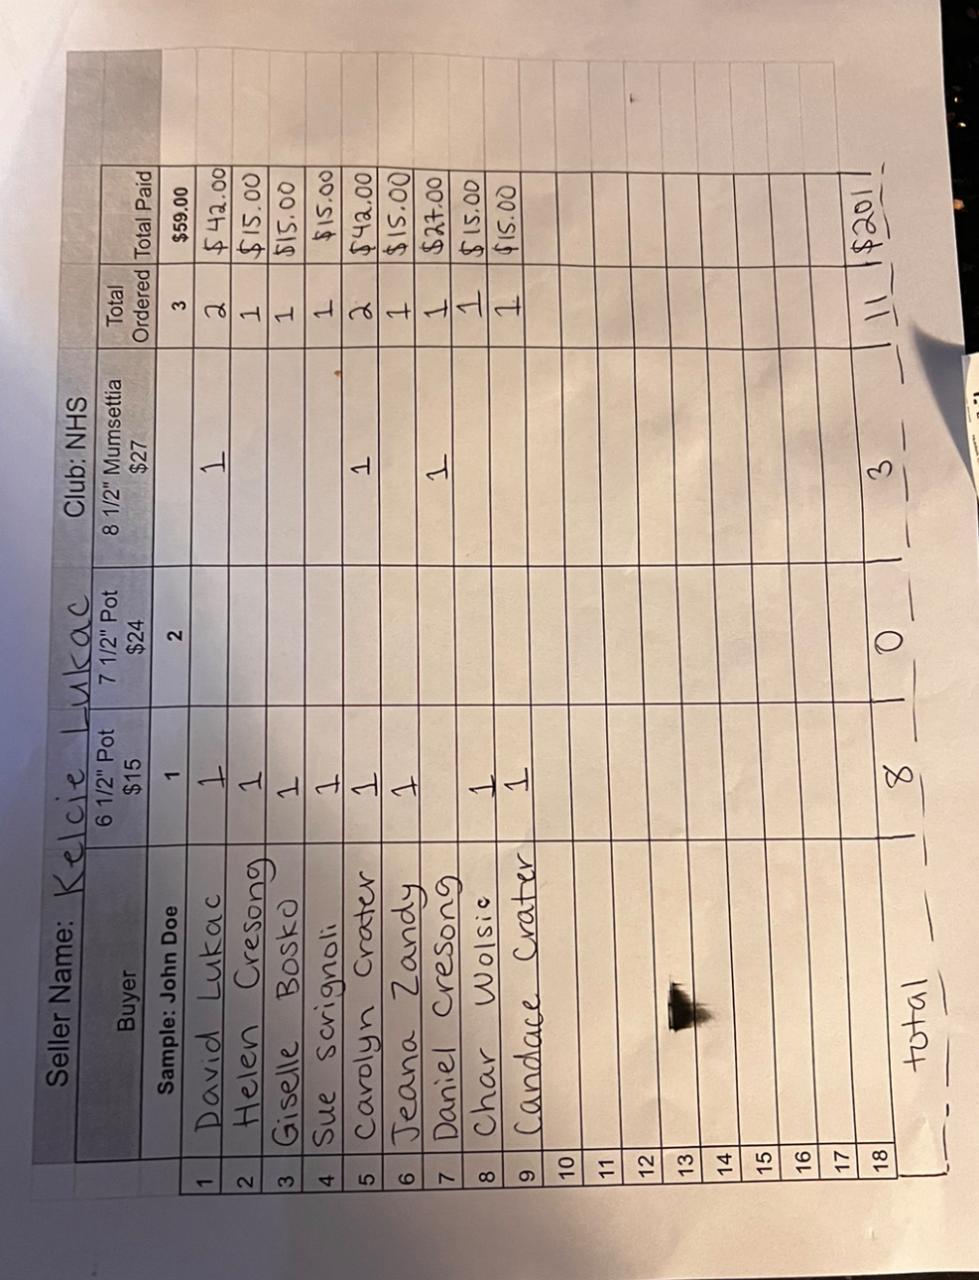 Seller Name: Kelcie Lukac Club: NHS
Buyer 6 1/2" Pot $15 7 1/2" Pot $24 8 1/2" Mumsettia $27 Total Ordered Total Paid
Sample: John Doe 1 2 3 $59.00
1 David Lukac 1 1 2 $42.00
2 Helen Cresong 1 1 $15.00
3 Giselle Bosko 1 1 $15.00
4 Sue Scrignoli 1 1 $15.00
5 Carolyn Crater 1 1 2 $42.00
6 Jeana Zandy 1 1 $15.00
7 Daniel Cresong 1 1 $27.00
8 Char Wolsic 1 1 $15.00
9 Candace Crater 1 1 $15.00
10
11
12
13
14
15
16
17
18
total 8 0 3 11 $201